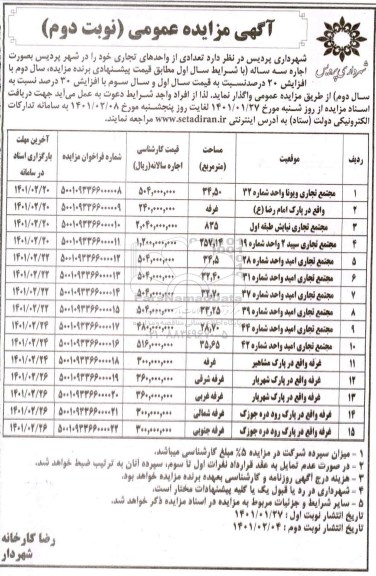 آگهی مزایده عمومی (نوبت دوم)
شهرداری پردیس
شهرداری پردیس در نظر دارد تعدادی از واحدهای تجاری خود را در شهر پردیس بصورت
اجاره سه ساله (با شرایط سال اول مطابق قیمت پیشنهادی برنده مزایده، سال دوم با
افزایش ۲۰ درصدنسبت به قیمت سال اول و سال سوم با افزایش ۳۰ درصد نسبت به
سال دوم) از طریق مزایده عمومی واگذار نماید. لذا از افراد واجد شرایط دعوت به عمل می‌آید جهت دریافت
اسناد مزایده از روز شنبه مورخ ۱۴۰۱/۰۱/۲۷ لغایت روز پنجشنبه مورخ ۱۴۰۱/۰۲/۰۸ به سامانه تدارکات
الکترونیکی دولت (ستاد) به آدرس اینترنتی www.setadiran.ir مراجعه نمایند.
ردیف موقعیت مساحت (مترمربع) قیمت کارشناسی اجاره سالانه(ریال) شماره فراخوان مزایده آخرین مهلت بارگزاری اسناد در سامانه
۱ مجتمع تجاری ویونا واحد شماره ۲۲ ۳۴,۵۰ ۵۰۴,۰۰۰,۰۰۰ ۵۰۰۱۰۹۳۳۶۶۰۰۰۰۰۸ ۱۴۰۱/۰۲/۲۰
۲ واقع در پارک امام رضا (ع) غرفه ۲۴۰,۰۰۰,۰۰۰ ۵۰۰۱۰۹۳۳۶۶۰۰۰۰۰۹ ۱۴۰۱/۰۲/۲۰
۳ مجتمع تجاری نیایش طبقه اول ۸۳۵ ۲,۰۴۰,۰۰۰,۰۰۰ ۵۰۰۱۰۹۳۳۶۶۰۰۰۰۱۰ ۱۴۰۱/۰۲/۲۰
۴ مجتمع تجاری سپید ۲ واحد شماره ۱۹ ۲۵۷,۱۴ ۱,۲۰۰,۰۰۰,۰۰۰ ۵۰۰۱۰۹۳۳۶۶۰۰۰۰۱۱ ۱۴۰۱/۰۲/۲۰
۵ مجتمع تجاری امید واحد شماره ۲۸ ۳۴,۵ ۵۰۴,۰۰۰,۰۰۰ ۵۰۰۱۰۹۳۳۶۶۰۰۰۰۱۲ ۱۴۰۱/۰۲/۲۲
۶ مجتمع تجاری امید واحد شماره ۳۱ ۳۲,۴۰ ۵۰۴,۰۰۰,۰۰۰ ۵۰۰۱۰۹۳۳۶۶۰۰۰۰۱۳ ۱۴۰۱/۰۲/۲۲
۷ مجتمع تجاری امید واحد شماره ۳۷ ۳۲,۷۰ ۵۰۴,۰۰۰,۰۰۰ ۵۰۰۱۰۹۳۳۶۶۰۰۰۰۱۴ ۱۴۰۱/۰۲/۲۲
۸ مجتمع تجاری امید واحد شماره ۳۹ ۳۳,۲۵ ۵۰۴,۰۰۰,۰۰۰ ۵۰۰۱۰۹۳۳۶۶۰۰۰۰۱۵ ۱۴۰۱/۰۲/۲۲
۹ مجتمع تجاری امید واحد شماره ۴۴ ۲۸,۷۰ ۴۸۰,۰۰۰,۰۰۰ ۵۰۰۱۰۹۳۳۶۶۰۰۰۰۱۷ ۱۴۰۱/۰۲/۲۴
۱۰ مجتمع تجاری امید واحد شماره ۴۲ ۳۵,۶۵ ۵۱۶,۰۰۰,۰۰۰ ۵۰۰۱۰۹۳۳۶۶۰۰۰۰۱۶ ۱۴۰۱/۰۲/۲۴
۱۱ غرفه واقع در پارک مشاهیر غرفه ۳۰۰,۰۰۰,۰۰۰ ۵۰۰۱۰۹۳۳۶۶۰۰۰۰۱۸ ۱۴۰۱/۰۲/۲۴
۱۲ غرفه واقع در پارک شهریار غرفه شرقی ۳۶۰,۰۰۰,۰۰۰ ۵۰۰۱۰۹۳۳۶۶۰۰۰۰۱۹ ۱۴۰۱/۰۲/۲۶
۱۳ غرفه واقع در پارک شهریار غرفه غربی ۳۶۰,۰۰۰,۰۰۰ ۵۰۰۱۰۹۳۳۶۶۰۰۰۰۲۰ ۱۴۰۱/۰۲/۲۶
۱۴ غرفه واقع در پارک رود دره جوزک غرفه شمالی ۳۰۰,۰۰۰,۰۰۰ ۵۰۰۱۰۹۳۳۶۶۰۰۰۰۲۱ ۱۴۰۱/۰۲/۲۶
۱۵ غرفه واقع در پارک رود دره جوزک غرفه جنوبی ۳۰۰,۰۰۰,۰۰۰ ۵۰۰۱۰۹۳۳۶۶۰۰۰۰۲۲ ۱۴۰۱/۰۲/۲۶
۱ - میزان سپرده شرکت در مزایده ۵% مبلغ کارشناسی میباشد.
۲ - در صورت عدم تمایل به عقد قرارداد نفرات اول تا سوم، سپرده آنان به ترتیب ضبط خواهد شد.
۳ - هزینه درج آگهی روزنامه و کارشناسی بعهده برنده مزایده خواهد بود.
۴ - شهرداری در رد یا قبول یک یا کلیه پیشنهادات مختار است.
۵ - سایر شرایط و جزئیات مربوط به مزایده در اسناد مزایده ذکر خواهد شد.
تاریخ انتشار نوبت اول : ۱۴۰۱/۰۱/۲۷
تاریخ انتشار نوبت دوم : ۱۴۰۱/۰۲/۰۴
رضا کارخانه
شهردار